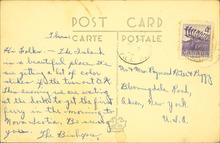 Thurs.
POST CARD
CARTE POSTALE
Hi Folks - The Island
is a beautiful place. We
are getting a lot of color
slides for the
This evening we are waiting
at the dock to get the first
ferry in the morning to
Nova Scotia. Be seeing
you. The
Mr + Mrs Raymond
Bloomingdale Road,
Akron, New York.
U. S. A.